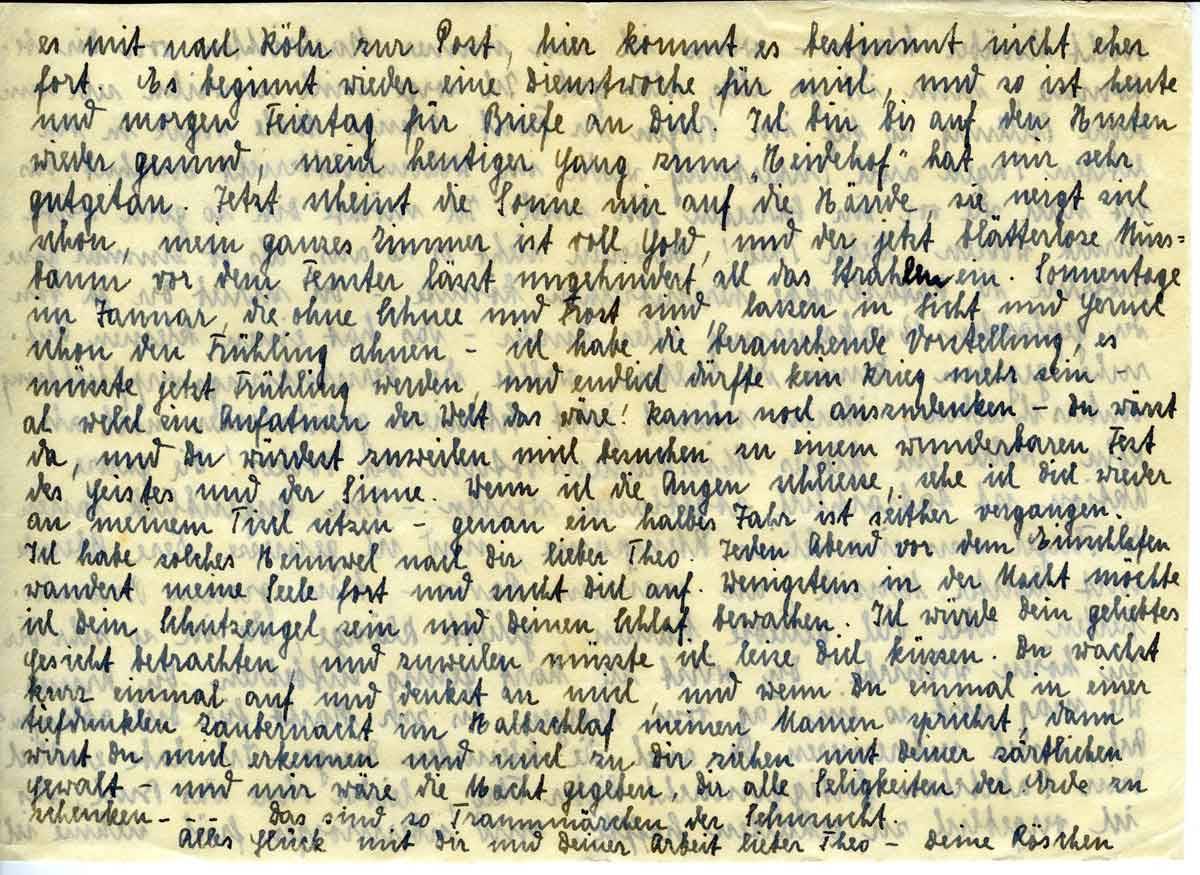 es mit nach Köln zur Post, hier kommt es bestimmt nicht eher
fort. Es beginnt wieder eine Dienstwoche für mich, und so ist heute
und morgen Feiertag für Briefe an Dich. Ich bin bis auf den Husten
wieder gesund, mein heutiger Gang zum „Heidehof“ hat mir sehr
gutgetan. Jetzt scheint die Sonne mir auf die Hände, sie neigt sich
schon, mein ganzes Zimmer ist voll Gold, und der jetzt blätterlose Nuss=
baum vor dem Fenster lässt ungehindert all das Strahlen ein. Sonnentage
im Januar, die ohne Schnee und Frost sind, lassen in Licht und Geruch
schon den Frühling ahnen – ich habe die berauschende Vorstellung, es
müsste jetzt Frühling werden, und endlich dürfte kein Krieg mehr sein –
ah welch ein Aufatmen der Welt das wäre! Kaum noch auszudenken – Du wärst
da, und Du würdest zuweilen mich besuchen zu einem wunderbaren Fest
des Geistes und der Sinne. Wenn ich die Augen schliesse, sehe ich Dich wieder
an meinem Tisch sitzen – genau ein halbes Jahr ist seither vergangen.
Ich habe solches Heimweh nach Dir lieber Theo. Jeden Abend vor dem Einschlafen
wandert meine Seele fort und sucht Dich auf. Wenigstens in der Nacht möchte
ich Dein Schutzengel sein und Deinen Schlaf bewachen. Ich würde Dein geliebtes
Gesicht betrachten, und zuweilen müsste ich leise Dich küssen. Du wachst
kurz einmal auf und denkst an mich, und wenn Du einmal in einer
tiefdunklen Zaubernacht im Halbschlaf meinen Namen sprichst, dann
wirst Du mich erkennen und mich zu Dir ziehen mit Deiner zärtlichen
Gewalt – und mir wäre die Macht gegeben, Dir alle Seligkeiten der Erde zu
schenken – – – Das sind so Traummärchen der Sehnsucht.
Alles Glück mit Dir und Deiner Arbeit lieber Theo – Deine Röschen